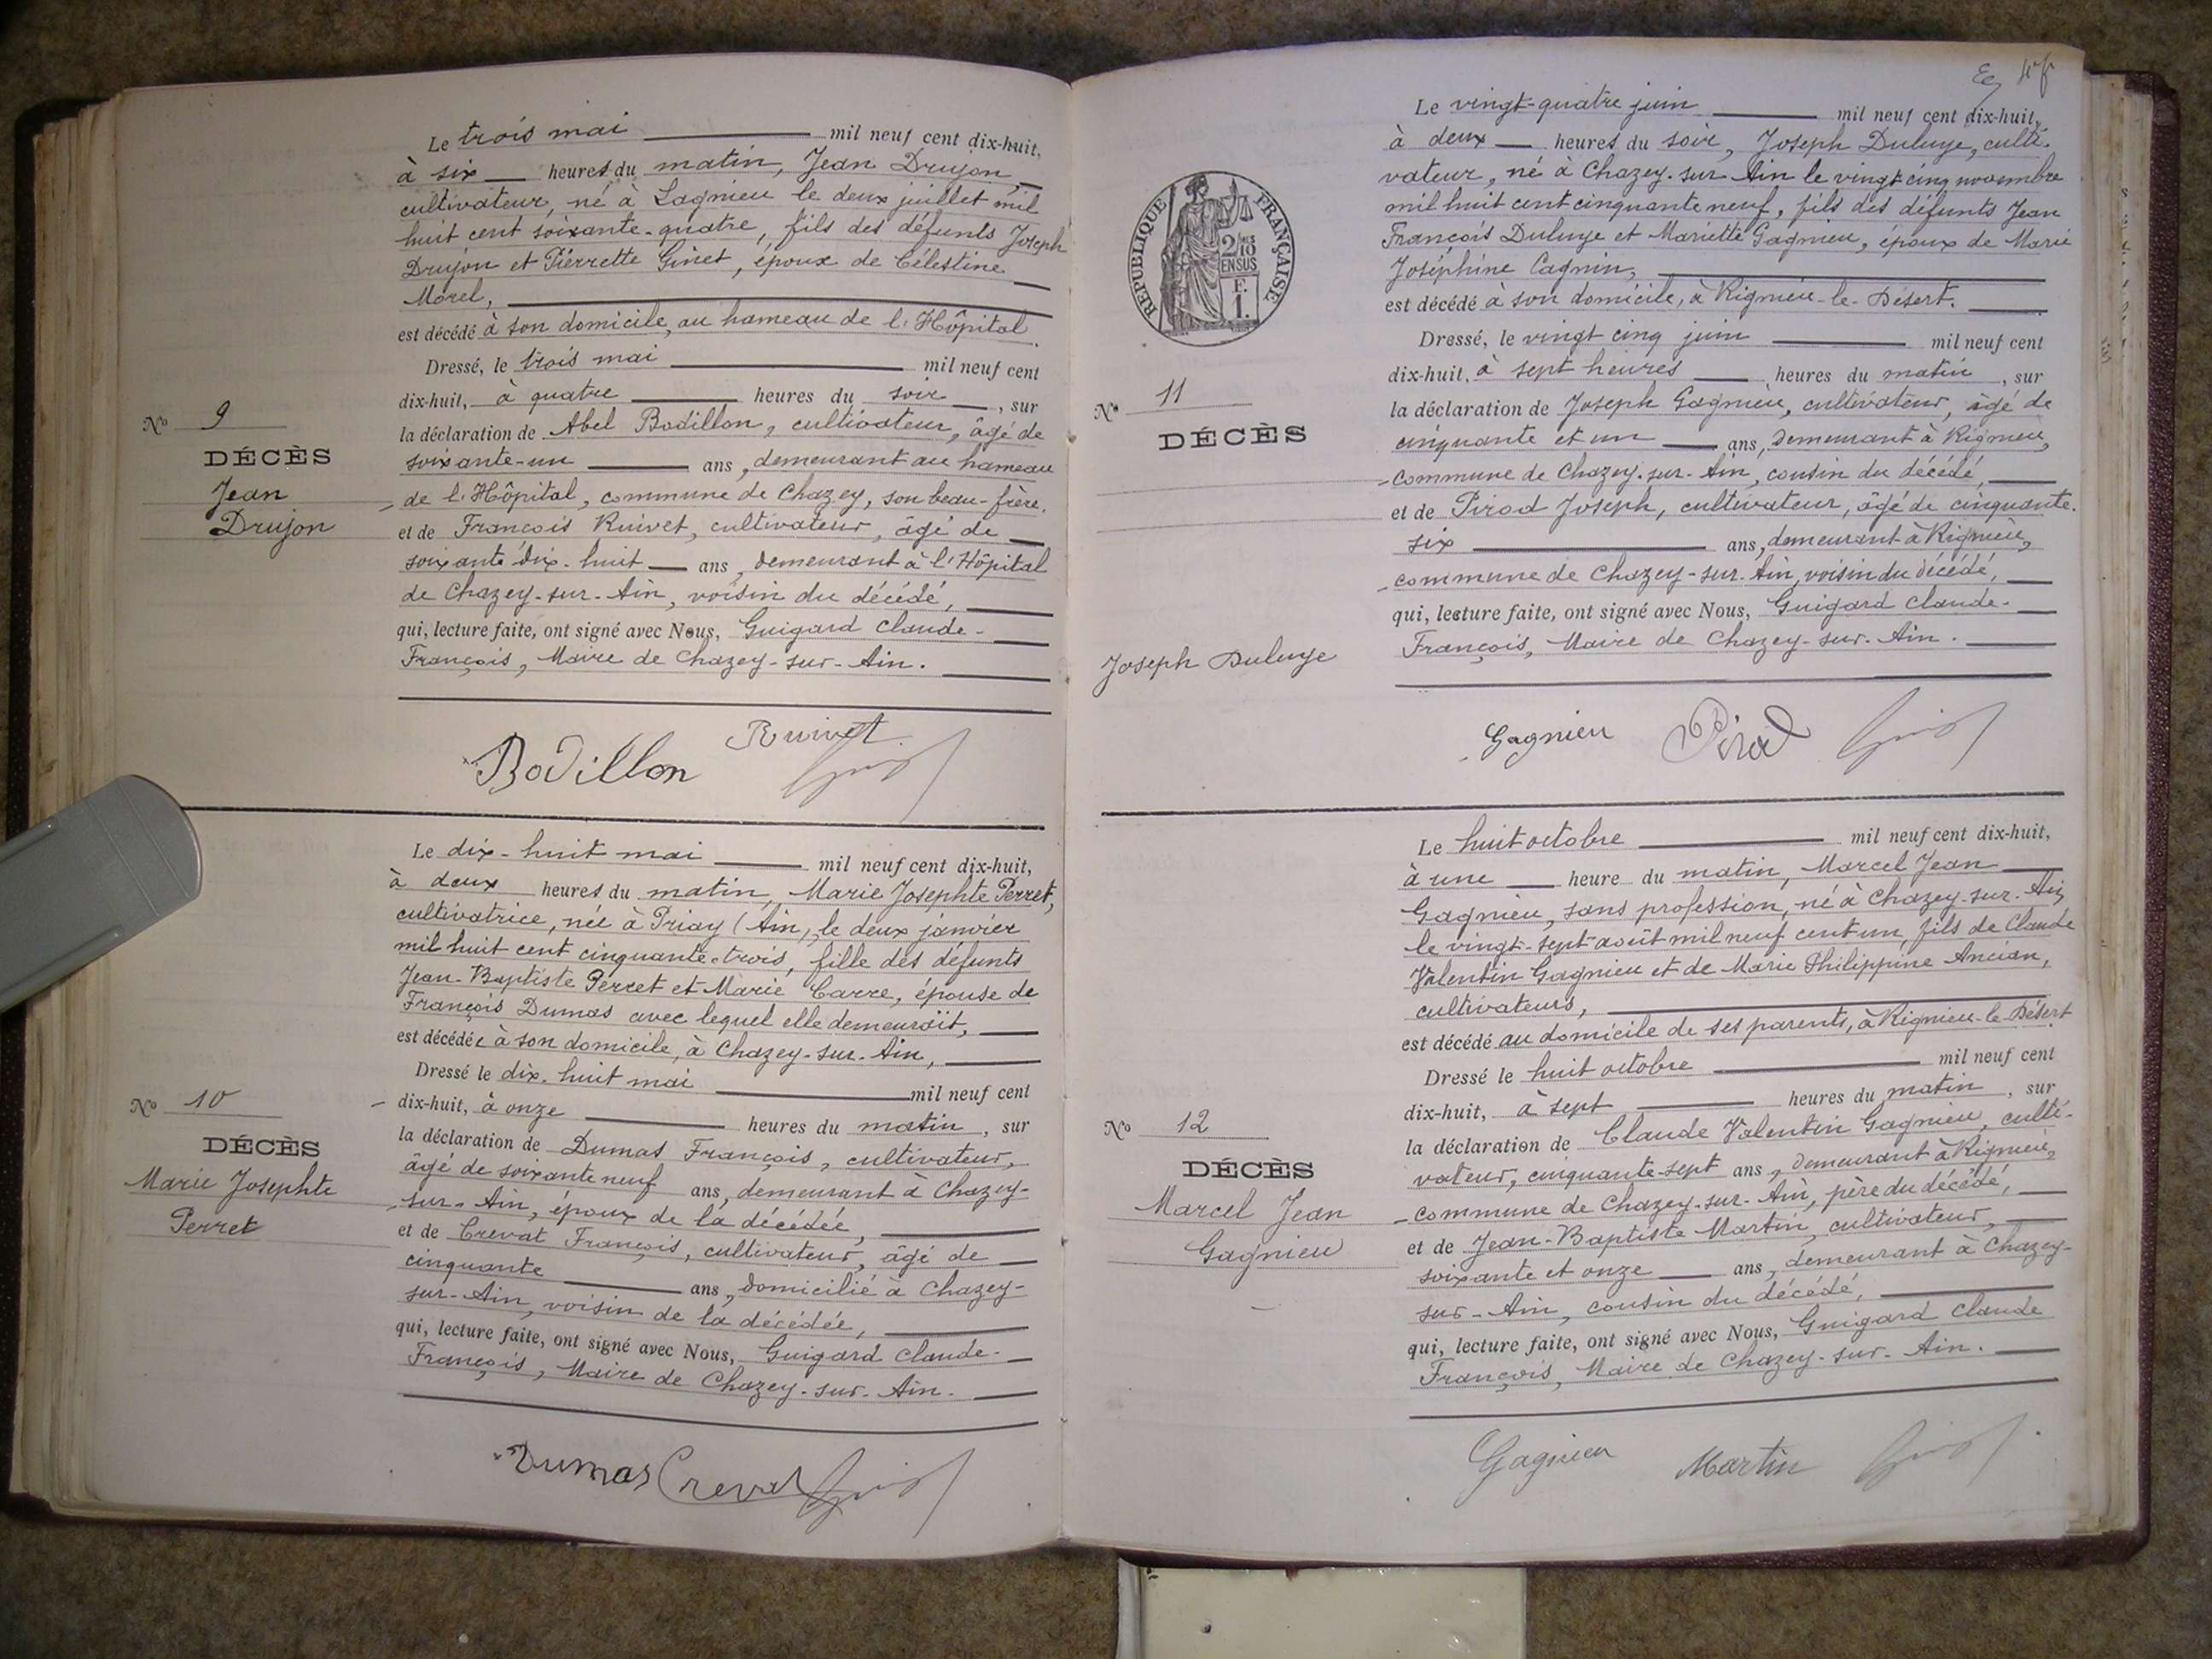 Le trois mai mil neuf cent dix-huit,
à six heures du matin, Jean Drujon,
cultivateur, né à Lagnieu le deux juillet mil
huit cent soixante-quatre, fils des défunts Joseph
Drujon et Pierrette Ginet, époux de Célestine
Morel,
est décédé à son domicile, au hameau de l'Hôpital.
Dressé, le trois mai mil neuf cent
dix-huit, à quatre heures du soir, sur
la déclaration de Abel Bodillon, cultivateur, âgé de
soixante-un ans, demeurant au hameau
de l'Hôpital, commune de Chazey, son beau-frère,
et de François Ruivet, cultivateur, âgé de
soixante dix-huit ans, demeurant à l'Hôpital
de Chazey-sur-Ain, voisin du décédé,
qui, lecture faite, ont signé avec Nous, Guigard Claude-
François, Maire de Chazey-sur-Ain.
N° 9
DÉCÈS
Jean
Drujon
Bodillon Ruivet
Le dix-huit mai mil neuf cent dix-huit,
à deux heures du matin, Marie Josephte Perret,
cultivatrice, née à Priay (Ain), le deux janvier
mil huit cent cinquante-trois, fille des défunts
Jean-Baptiste Perret et Marie Carre, épouse de
François Dumas avec lequel elle demeurait,
est décédée à son domicile, à Chazey-sur-Ain,
Dressé le dix-huit mai mil neuf cent
dix-huit, à onze heures du matin, sur
la déclaration de Dumas François, cultivateur,
âgé de soixante neuf ans, demeurant à Chazey-
sur-Ain, époux de la décédée,
et de Crevat François, cultivateur, âgé de
cinquante ans, domicilié à Chazey-
sur-Ain, voisin de la décédée,
qui, lecture faite, ont signé avec Nous, Guigard Claude-
François, Maire de Chazey-sur-Ain.
N° 10
DÉCÈS
Marie Josephte
Perret
Dumas Crevat
Le vingt-quatre juin mil neuf cent dix-huit,
à deux heures du soir, Joseph Duluye, culti-
vateur, né à Chazey-sur-Ain le vingt cinq novembre
mil huit cent cinquante neuf, fils des défunts Jean
François Duluye et Mariette Gagnieu, époux de Marie
Joséphine Cagnin,
est décédé à son domicile, à Rignieu-le-Désert.
Dressé, le vingt cinq juin mil neuf cent
dix-huit, à sept heures heures du matin, sur
la déclaration de Joseph Gagnieu, cultivateur, âgé de
cinquante et un ans, demeurant à Rignieu,
commune de Chazey-sur-Ain, cousin du décédé,
et de Pirod Joseph, cultivateur, âgé de cinquante-
six ans, demeurant à Rignieu,
commune de Chazey-sur-Ain, voisin du décédé,
qui, lecture faite, ont signé avec Nous, Guigard Claude-
François, Maire de Chazey-sur-Ain.
RÉPUBLIQUE FRANÇAISE
2/10
EN SUS
F.
1.
N° 11
DÉCÈS
Joseph Duluye
Gagnieu Pirod
Le huit octobre mil neuf cent dix-huit,
à une heure du matin, Marcel Jean
Gagnieu, sans profession, né à Chazey-sur-Ain,
le vingt-sept août mil neuf cent un, fils de Claude
Valentin Gagnieu et de Marie Philippine Ancian,
cultivateurs,
est décédé au domicile de ses parents, à Rignieu-le-Désert
Dressé le huit octobre mil neuf cent
dix-huit, à sept heures du matin, sur
la déclaration de Claude Valentin Gagnieu, culti-
vateur, cinquante-sept ans, demeurant à Rignieu,
commune de Chazey-sur-Ain, père du décédé,
et de Jean-Baptiste Martin, cultivateur,
soixante et onze ans, demeurant à Chazey-
sur-Ain, cousin du décédé,
qui, lecture faite, ont signé avec Nous, Guigard Claude
François, Maire de Chazey-sur-Ain.
N° 12
DÉCÈS
Marcel Jean
Gagnieu
Gagnieu Martin